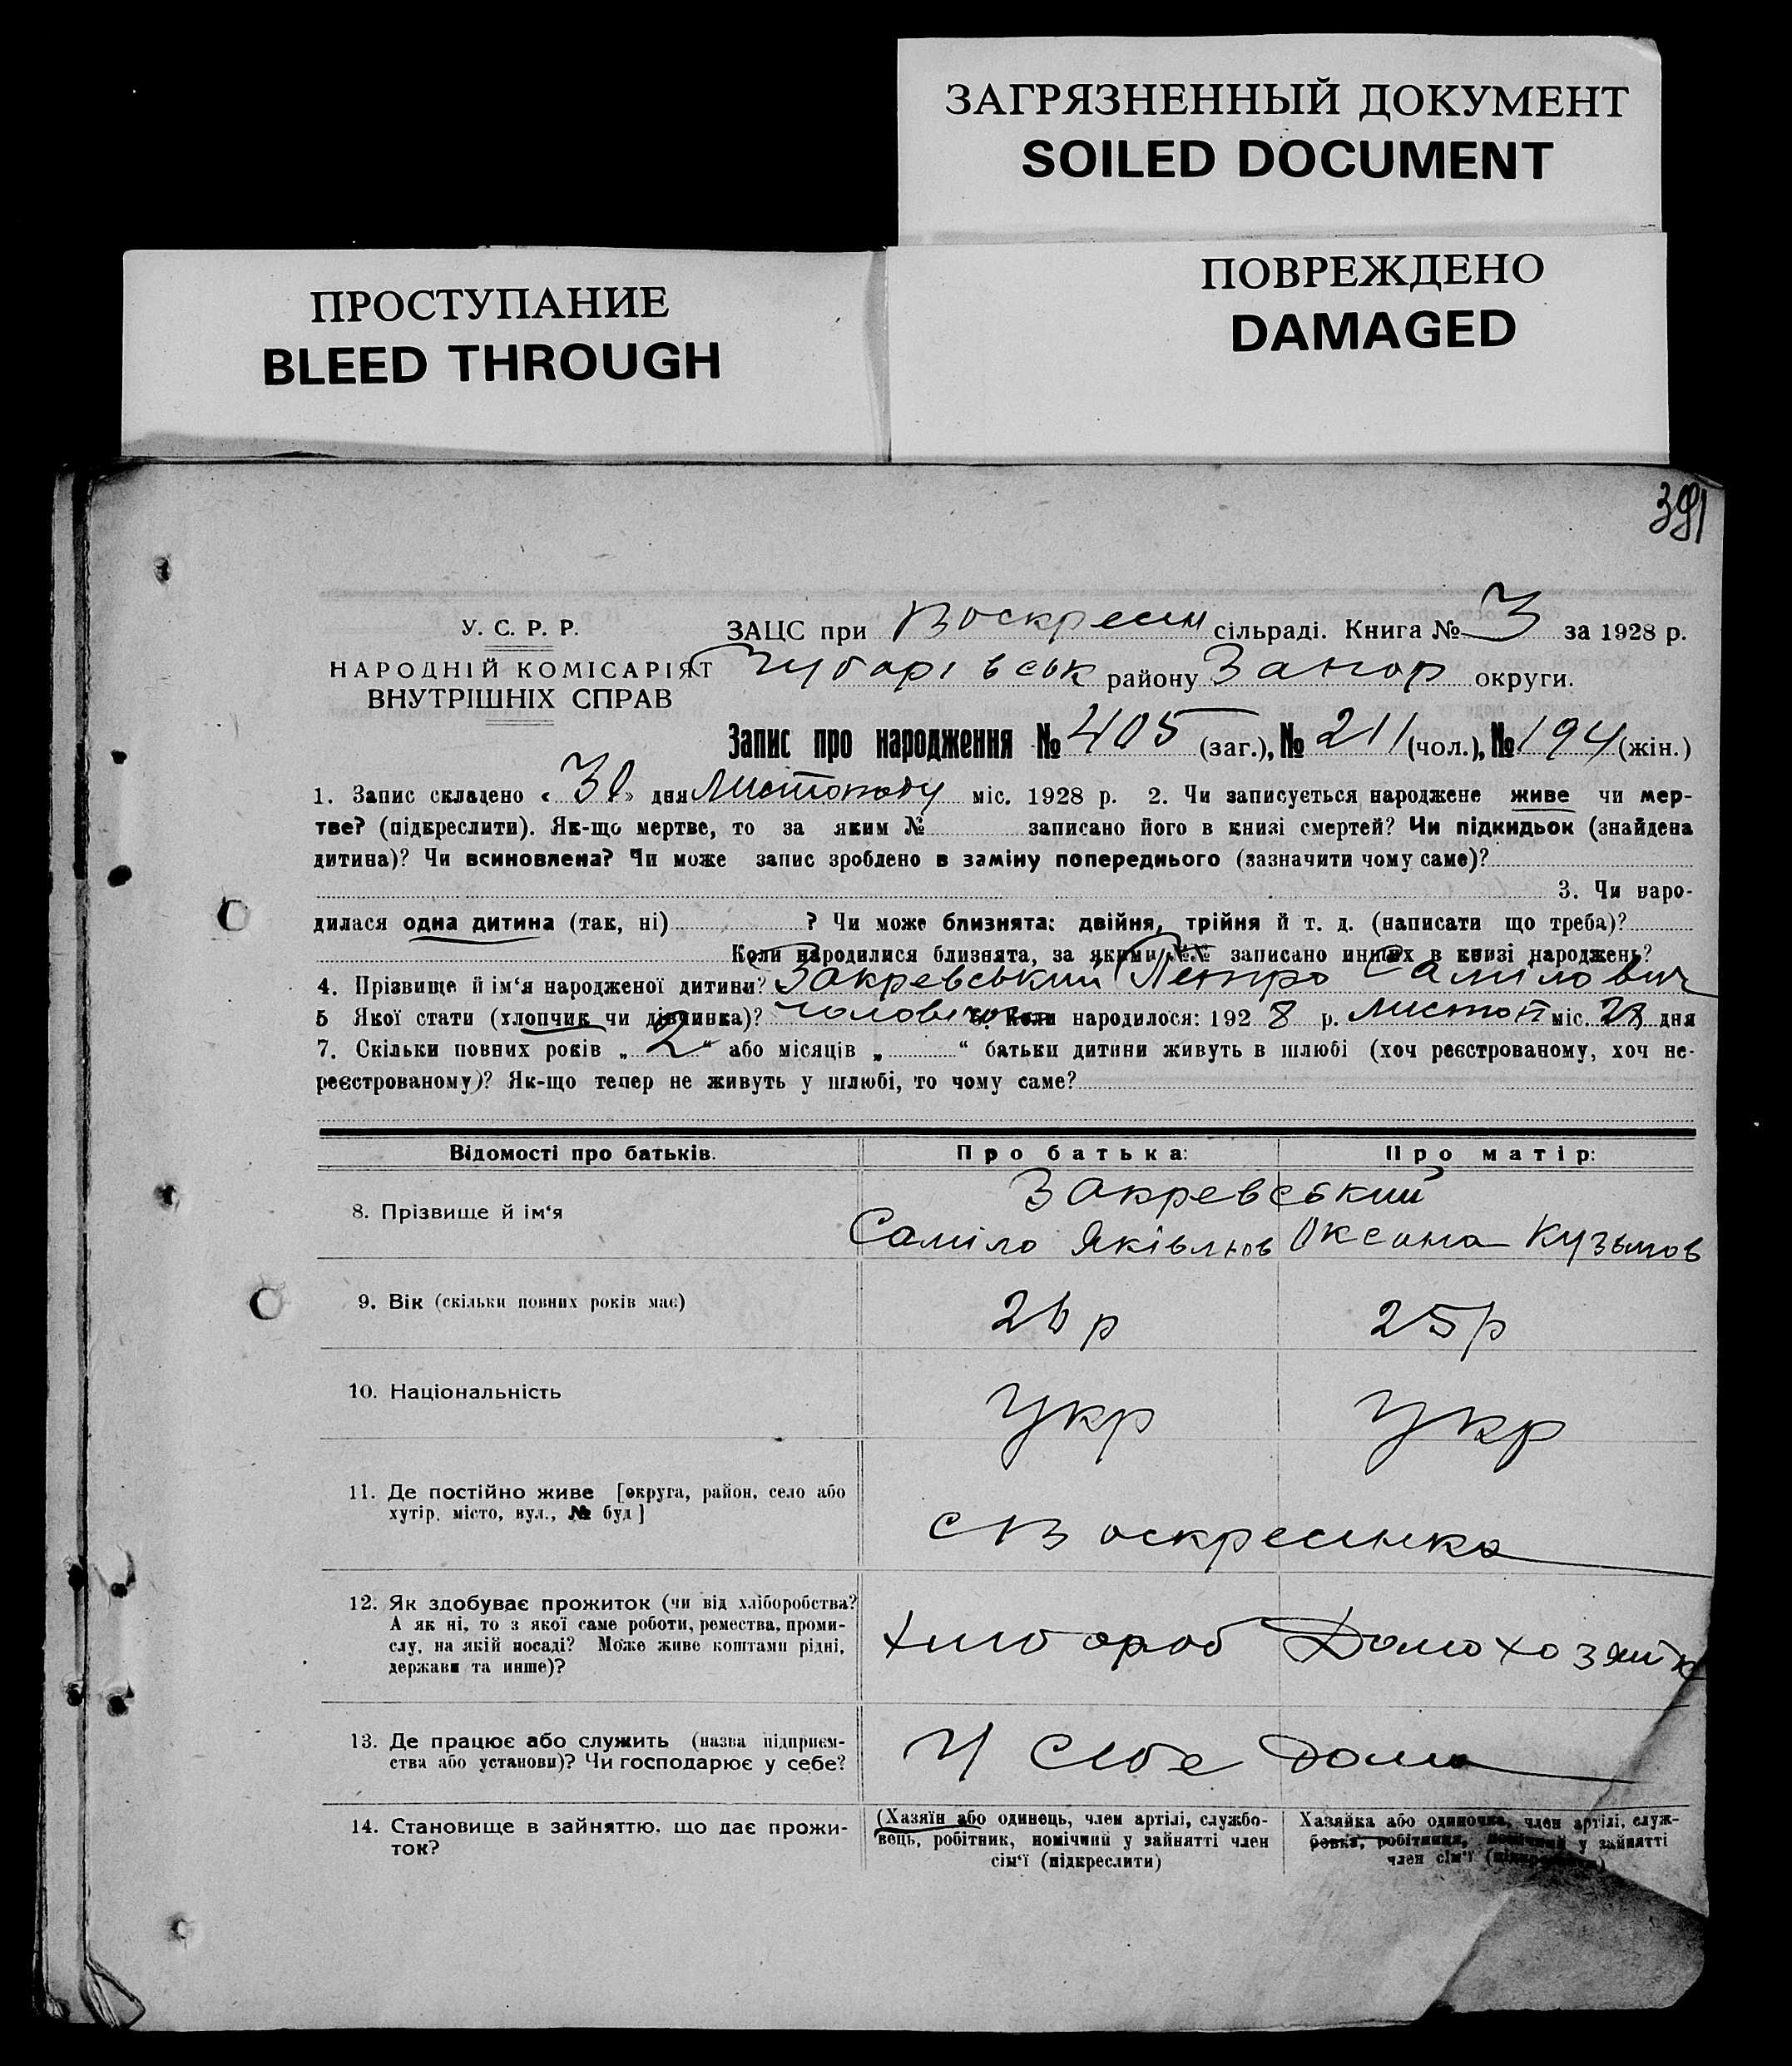 ЗАГРЯЗНЕННЫЙ ДОКУМЕНТ
SOILED DOCUMENT
ПРОСТУПАНИЕ
BLEED THROUGH
ПОВРЕЖДЕНО
DAMAGED
391
У. С. Р. Р.
НАРОДНІЙ КОМІСАРІЯТ
ВНУТРІШНІХ СПРАВ
ЗАЦС при Воскресен сільраді. Книга № 3 за 1928 р.
Чубарівськ району Запор округи.
Запис про народження № 405 (заг.), № 211 (чол.), № 194 (жін.)
1. Запис складено « 30 » дня Листопаду міс. 1928 р. 2. Чи записується народжене живе чи мер-
тве? (підкреслити). Як-що мертве, то за яким № записано його в книзі смертей? Чи підкидьок (знайдена
дитина)? Чи всиновлена? Чи може запис зроблено в заміну попереднього (зазначити чому саме)?
3. Чи наро-
дилася одна дитина (так, ні) ? Чи може близнята: двійня, трійня й т. д. (написати що треба)?
Коли народилися близнята, за якими №№ записано инших в книзі народжень?
4. Прізвище й ім‘я народженої дитини? Закревський Петро Самілович
5 Якої стати (хлопчик чи дівчинка)? 6. Коли народилося: 192 8 р. Листоп міс. 28 дня
7. Скільки повних років „ 2 “ або місяців „ “ батьки дитини живуть в шлюбі (хоч реєстрованому, хоч не-
реєстрованому)? Як-що тепер не живуть у шлюбі, то чому саме?
Відомості про батьків. Про батька: Про матір:
Закревський
8. Прізвище й ім‘я Саміло Яківлнов Оксана Кузьмов
9. Вік (скільки повних років має) 26 р 25 р
10. Національність Укр Укр
11. Де постійно живе [округа, район, село або
хутір, місто, вул., № буд ] с Воскресенка
12. Як здобуває прожиток (чи від хліборобства?
А як ні, то з якої саме роботи, ремества, проми-
слу, на якій посаді? Може живе коштами рідні,
держави та инше)? Хлібороб Домохозяйк
13. Де працює або служить (назва підприєм-
ства або установи)? Чи господарює у себе? У себе дома
14. Становище в зайняттю, що дає прожи-
ток?
(Хазяїн або одинець, член артілі, службо-
вець, робітник, помічний у зайнятті член
сім‘ї (підкреслити)
Хазяйка або одиночка, член артілі, служ-
бовка, робітниця, помічний у зайнятті
член сім‘ї (підкреслити)